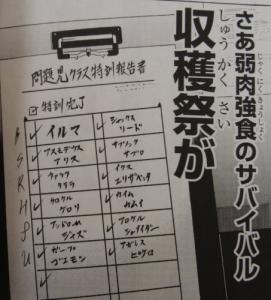 さあ弱肉強食のサバイバル
じゃくにくきょうしょく
収穫祭が
しゅうかくさい
問題児クラス特訓報告書
特訓完了
イルマ
アスモデウス
アリス
クララ
クロケル
ケロリ
アンドロM
ジャズ
ガープ
ゴエモン
シャックス
リード
サブノック
サブロ
イクス
エリザベッタ
カイム
カムイ
アロケル
シュナイダー
アガレス
ピケロ